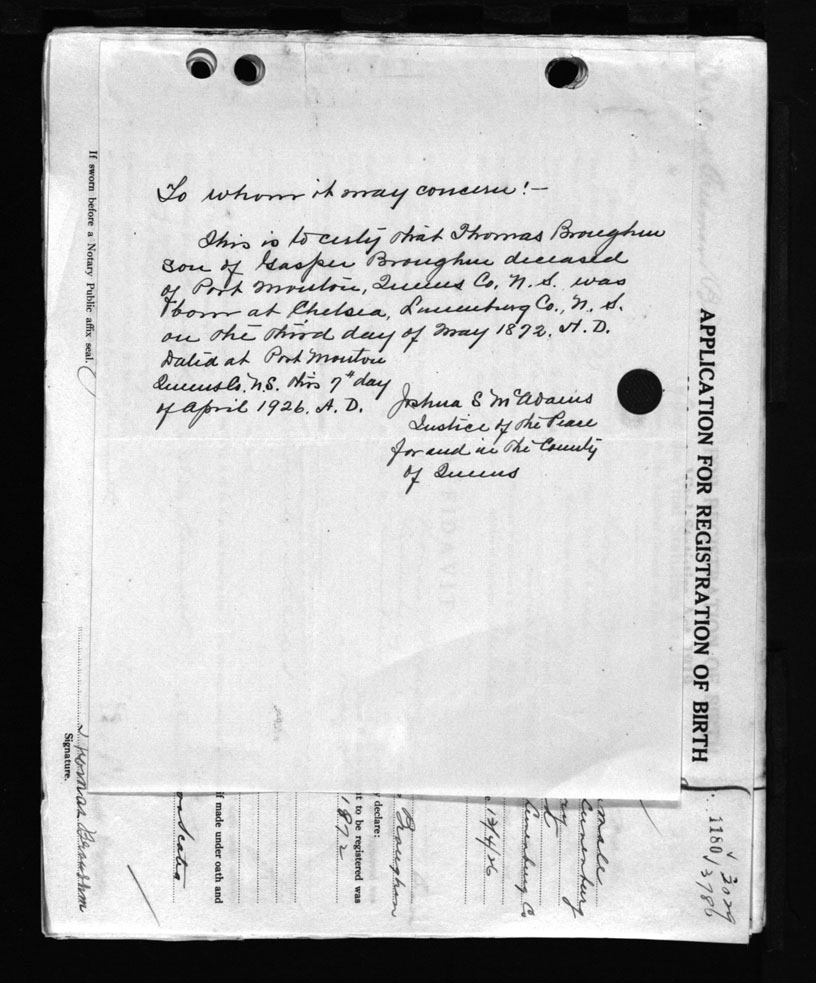 To whom it may concern! —
This is to certify that Thomas Broughm
son of Gasper Broughm deceased
of Port Mouton, Queens Co, N. S. was
born at Chelsea, Lunenburg Co., N. S.
on the third day of May 1872. A. D.
Dated at Port Mouton
Queens Co. N.S. this 7th day
of April 1926. A. D.
Joshua S McAdams
Justice of the Peace
for and in the County
of Queens
If sworn before a Notary Public affix seal.
Thomas
Signature.
APPLICATION FOR REGISTRATION OF BIRTH
1180
3029
3786
male
Lunenburg
Lunenburg Co
12/4/26
y declare:
t to be registered was
1872
if made under oath and
Scotia
AFFIDAVIT